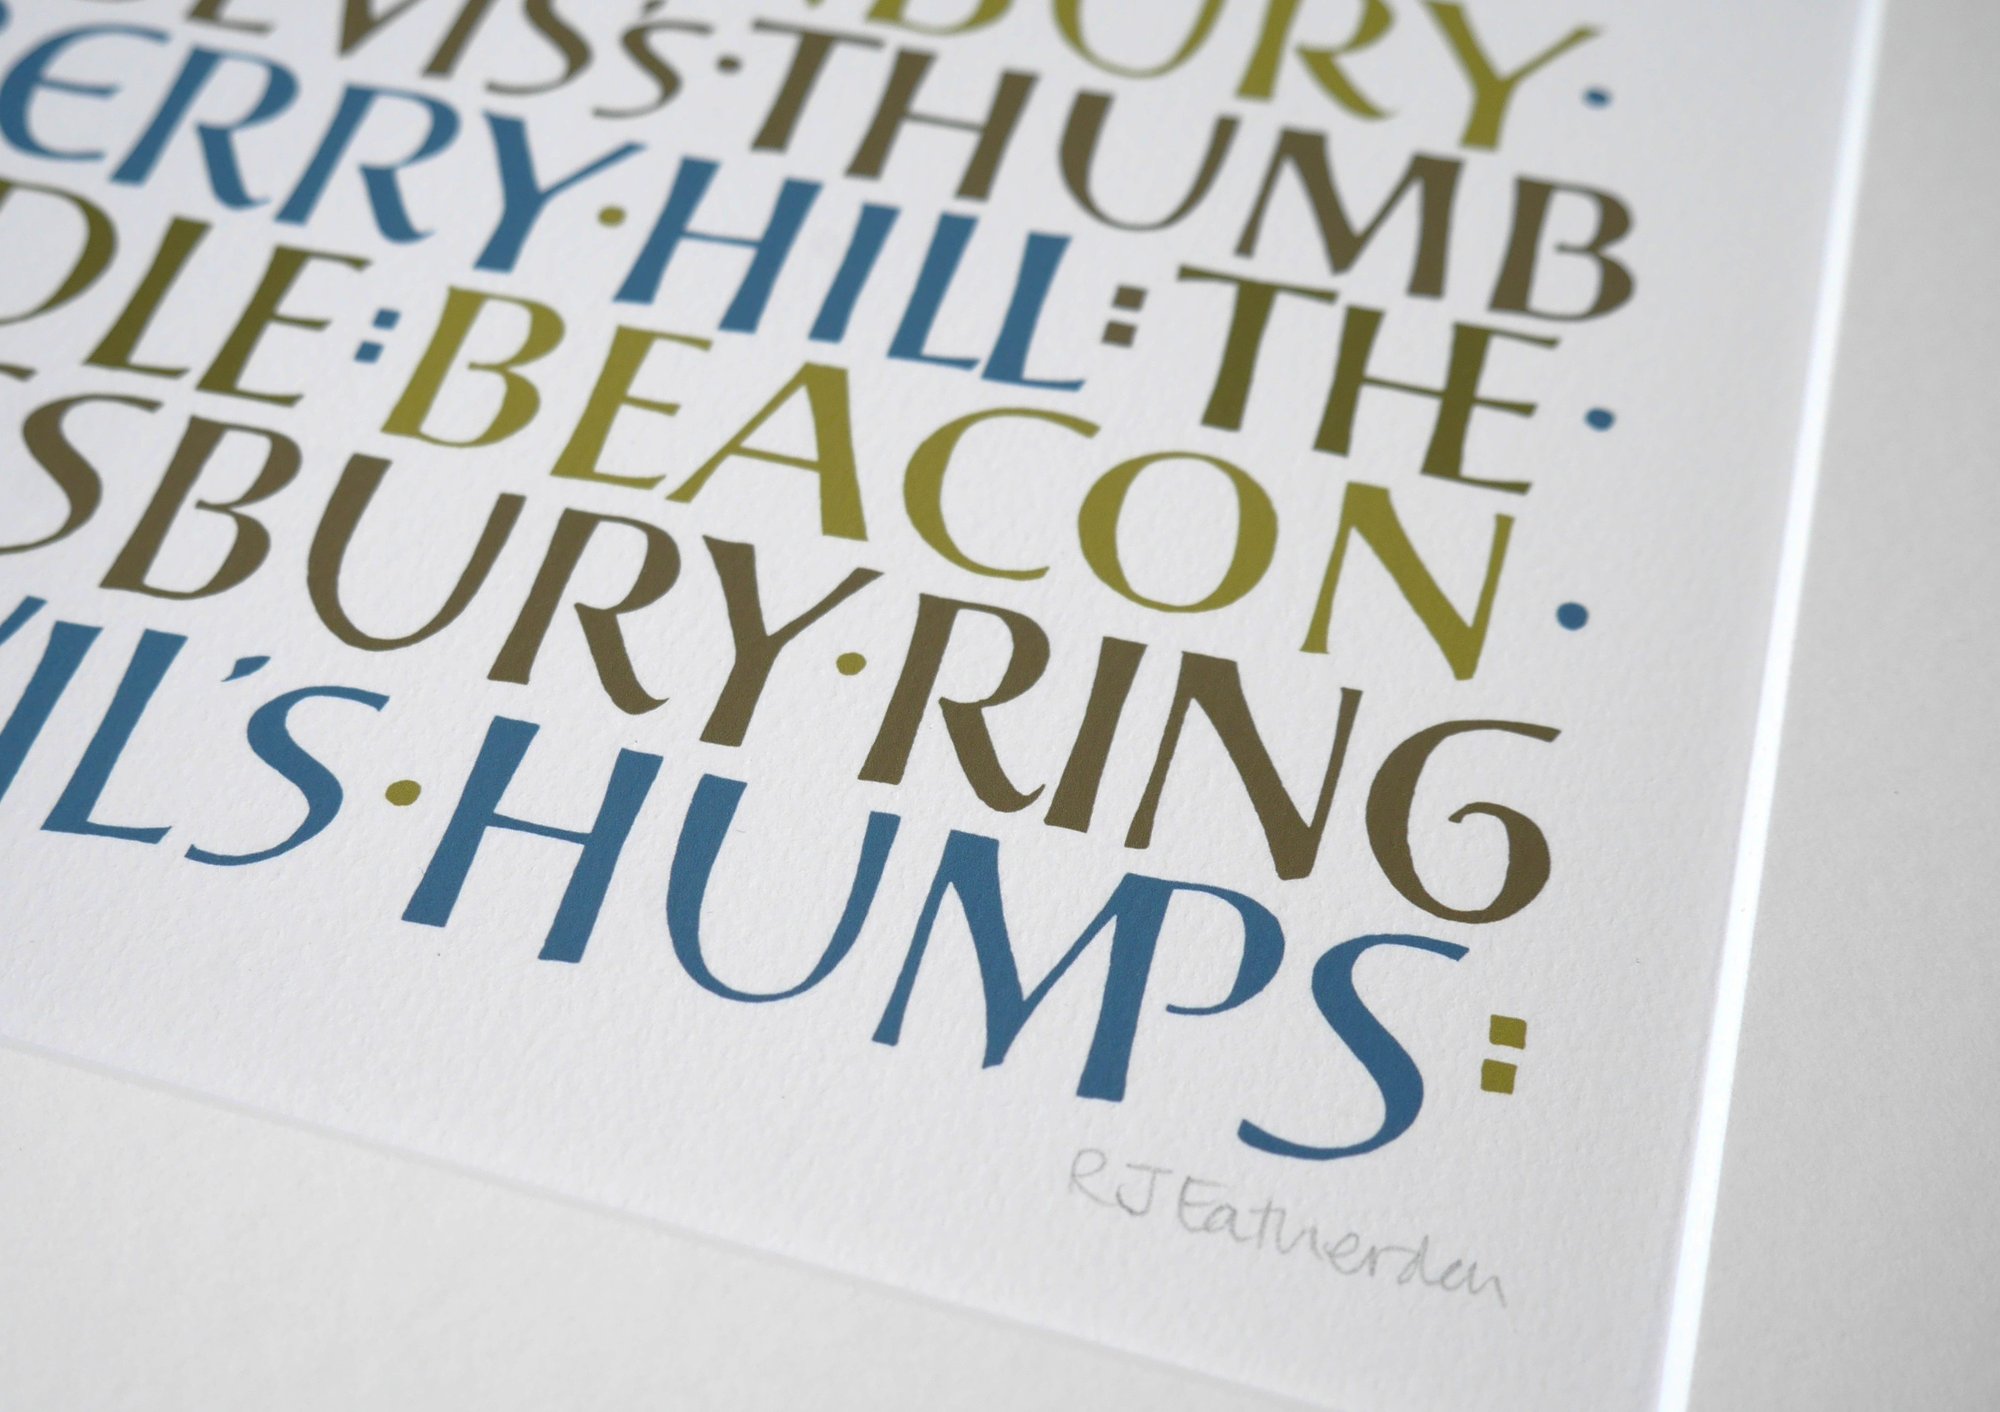 BURY·
EVIS's·THUMB
ERRY·HILL:THE·
DLE:BEACON·
SBURY·RING
IL's·HUMPS:
R J Eatherden